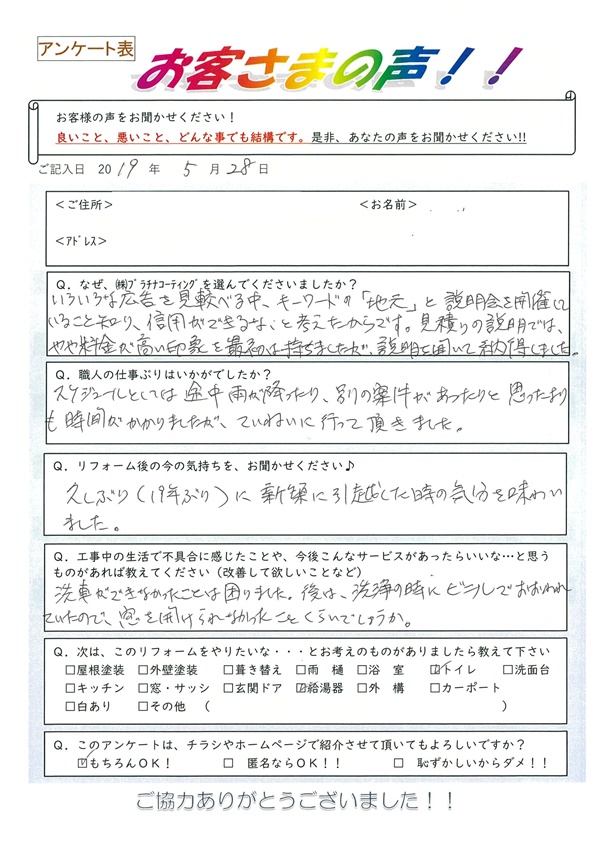 アンケート表
お客さまの声！！
お客様の声をお聞かせください！
良いこと、悪いこと、どんな事でも結構です。是非、あなたの声をお聞かせください!!
ご記入日 2019 年 5 月 28 日
＜ご住所＞ ＜お名前＞
＜ｱﾄﾞﾚｽ＞
Q．なぜ、㈱ﾌﾟﾗﾁﾅｺｰﾃｨﾝｸﾞを選んでくださいましたか？
いろいろな広告を見較べる中、キーワードの「地元」と説明会を開催して
いること知り、信用ができるな、と考えたからです。見積りの説明では、
やや料金が高い印象を最初は持ちましたが、説明を聞いて納得しました。
Q．職人の仕事ぶりはいかがでしたか？
スケジュールとしては途中雨が降ったり、別の案件があったりと思ったより
も時間がかかりましたが、ていねいに行って頂きました。
Q．リフォーム後の今の気持ちを、お聞かせください♪
久しぶり（19年ぶり）に新築に引越した時の気分を味わい
ました。
Q．工事中の生活で不具合に感じたことや、今後こんなサービスがあったらいいな…と思う
ものがあれば教えてください（改善して欲しいことなど）
洗車ができなかったことは困りました。後は、洗浄の時にビニールでおおわれ
ていたので、窓を開けられなかったことくらいでしょうか。
Q．次は、このリフォームをやりたいな・・・とお考えのものがありましたら教えて下さい
□屋根塗装 □外壁塗装 □葺き替え □雨 樋 □浴 室 ☑トイレ □洗面台
□キッチン □窓・サッシ □玄関ドア ☑給湯器 □外 構 □カーポート
□白あり □その他 （ ）
Q．このアンケートは、チラシやホームページで紹介させて頂いてもよろしいですか？
☑もちろんOK！ □ 匿名ならOK！！ □ 恥ずかしいからダメ！！
ご協力ありがとうございました！！